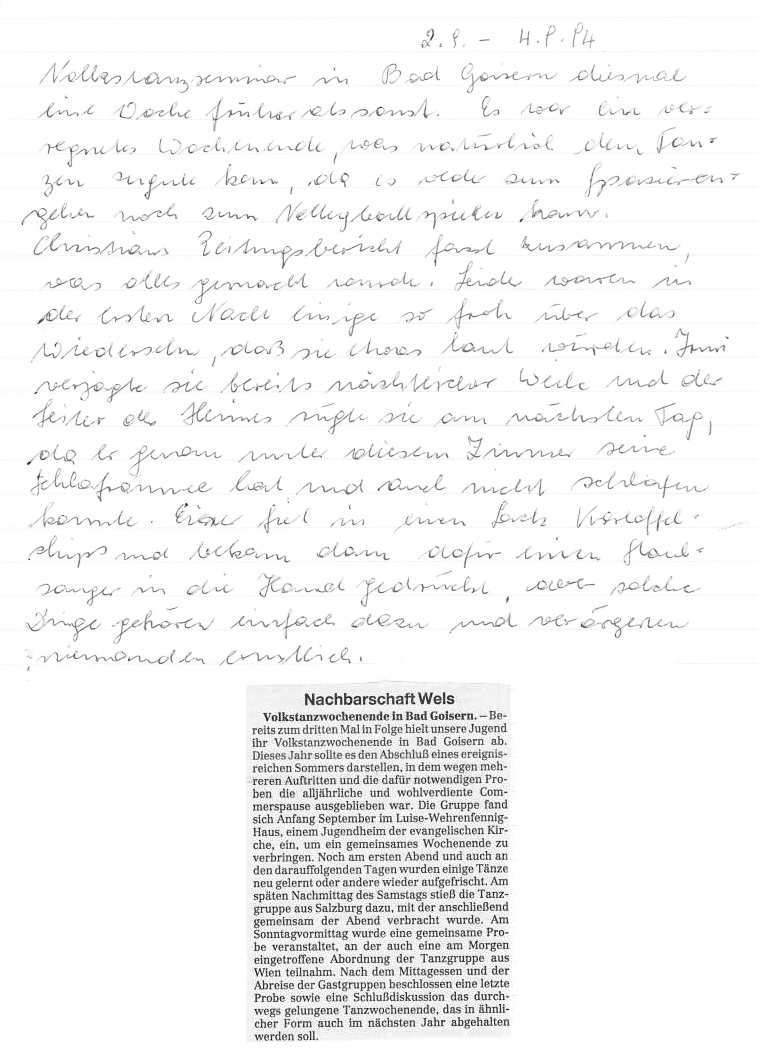 2.9. - 4.9.94
Volkstanzseminar in Bad Goisern diesmal
eine Woche früher als sonst. Es war ein ver-
regnetes Wochenende, was natürlich dem Tan-
zen zugute kam, da es weder zum Spazieren-
gehen noch zum Volleyballspielen kam.
Christians Zeitungsbericht fasst zusammen,
was alles gemacht wurde. Leider waren in
der ersten Nacht einige so froh über das
Wiedersehn, daß sie etwas laut wurden.
verjagte sie bereits nächtlicher Weile und der
Leiter des Heimes rügte sie am nächsten Tag,
da er genau unter diesem Zimmer seine
Schlafräume hat und auch nicht schlafen
konnte. Einer fiel in einen Sack Kartoffel-
chips und bekam dann dafür einen Staub-
sauger in die Hand gedrückt, aber solche
Dinge gehören einfach dazu und verärgerten
niemanden ernstlich.
Nachbarschaft Wels
Volkstanzwochenende in Bad Goisern. – Be-
reits zum dritten Mal in Folge hielt unsere Jugend
ihr Volkstanzwochenende in Bad Goisern ab.
Dieses Jahr sollte es den Abschluß eines ereignis-
reichen Sommers darstellen, in dem wegen meh-
reren Auftritten und die dafür notwendigen Pro-
ben die alljährliche und wohlverdiente Com-
merspause ausgeblieben war. Die Gruppe fand
sich Anfang September im Luise-Wehrenfennig-
Haus, einem Jugendheim der evangelischen Kir-
che, ein, um ein gemeinsames Wochenende zu
verbringen. Noch am ersten Abend und auch an
den darauffolgenden Tagen wurden einige Tänze
neu gelernt oder andere wieder aufgefrischt. Am
späten Nachmittag des Samstags stieß die Tanz-
gruppe aus Salzburg dazu, mit der anschließend
gemeinsam der Abend verbracht wurde. Am
Sonntagvormittag wurde eine gemeinsame Pro-
be veranstaltet, an der auch eine am Morgen
eingetroffene Abordnung der Tanzgruppe aus
Wien teilnahm. Nach dem Mittagessen und der
Abreise der Gastgruppen beschlossen eine letzte
Probe sowie eine Schlußdiskussion das durch-
wegs gelungene Tanzwochenende, das in ähnli-
cher Form auch im nächsten Jahr abgehalten
werden soll.